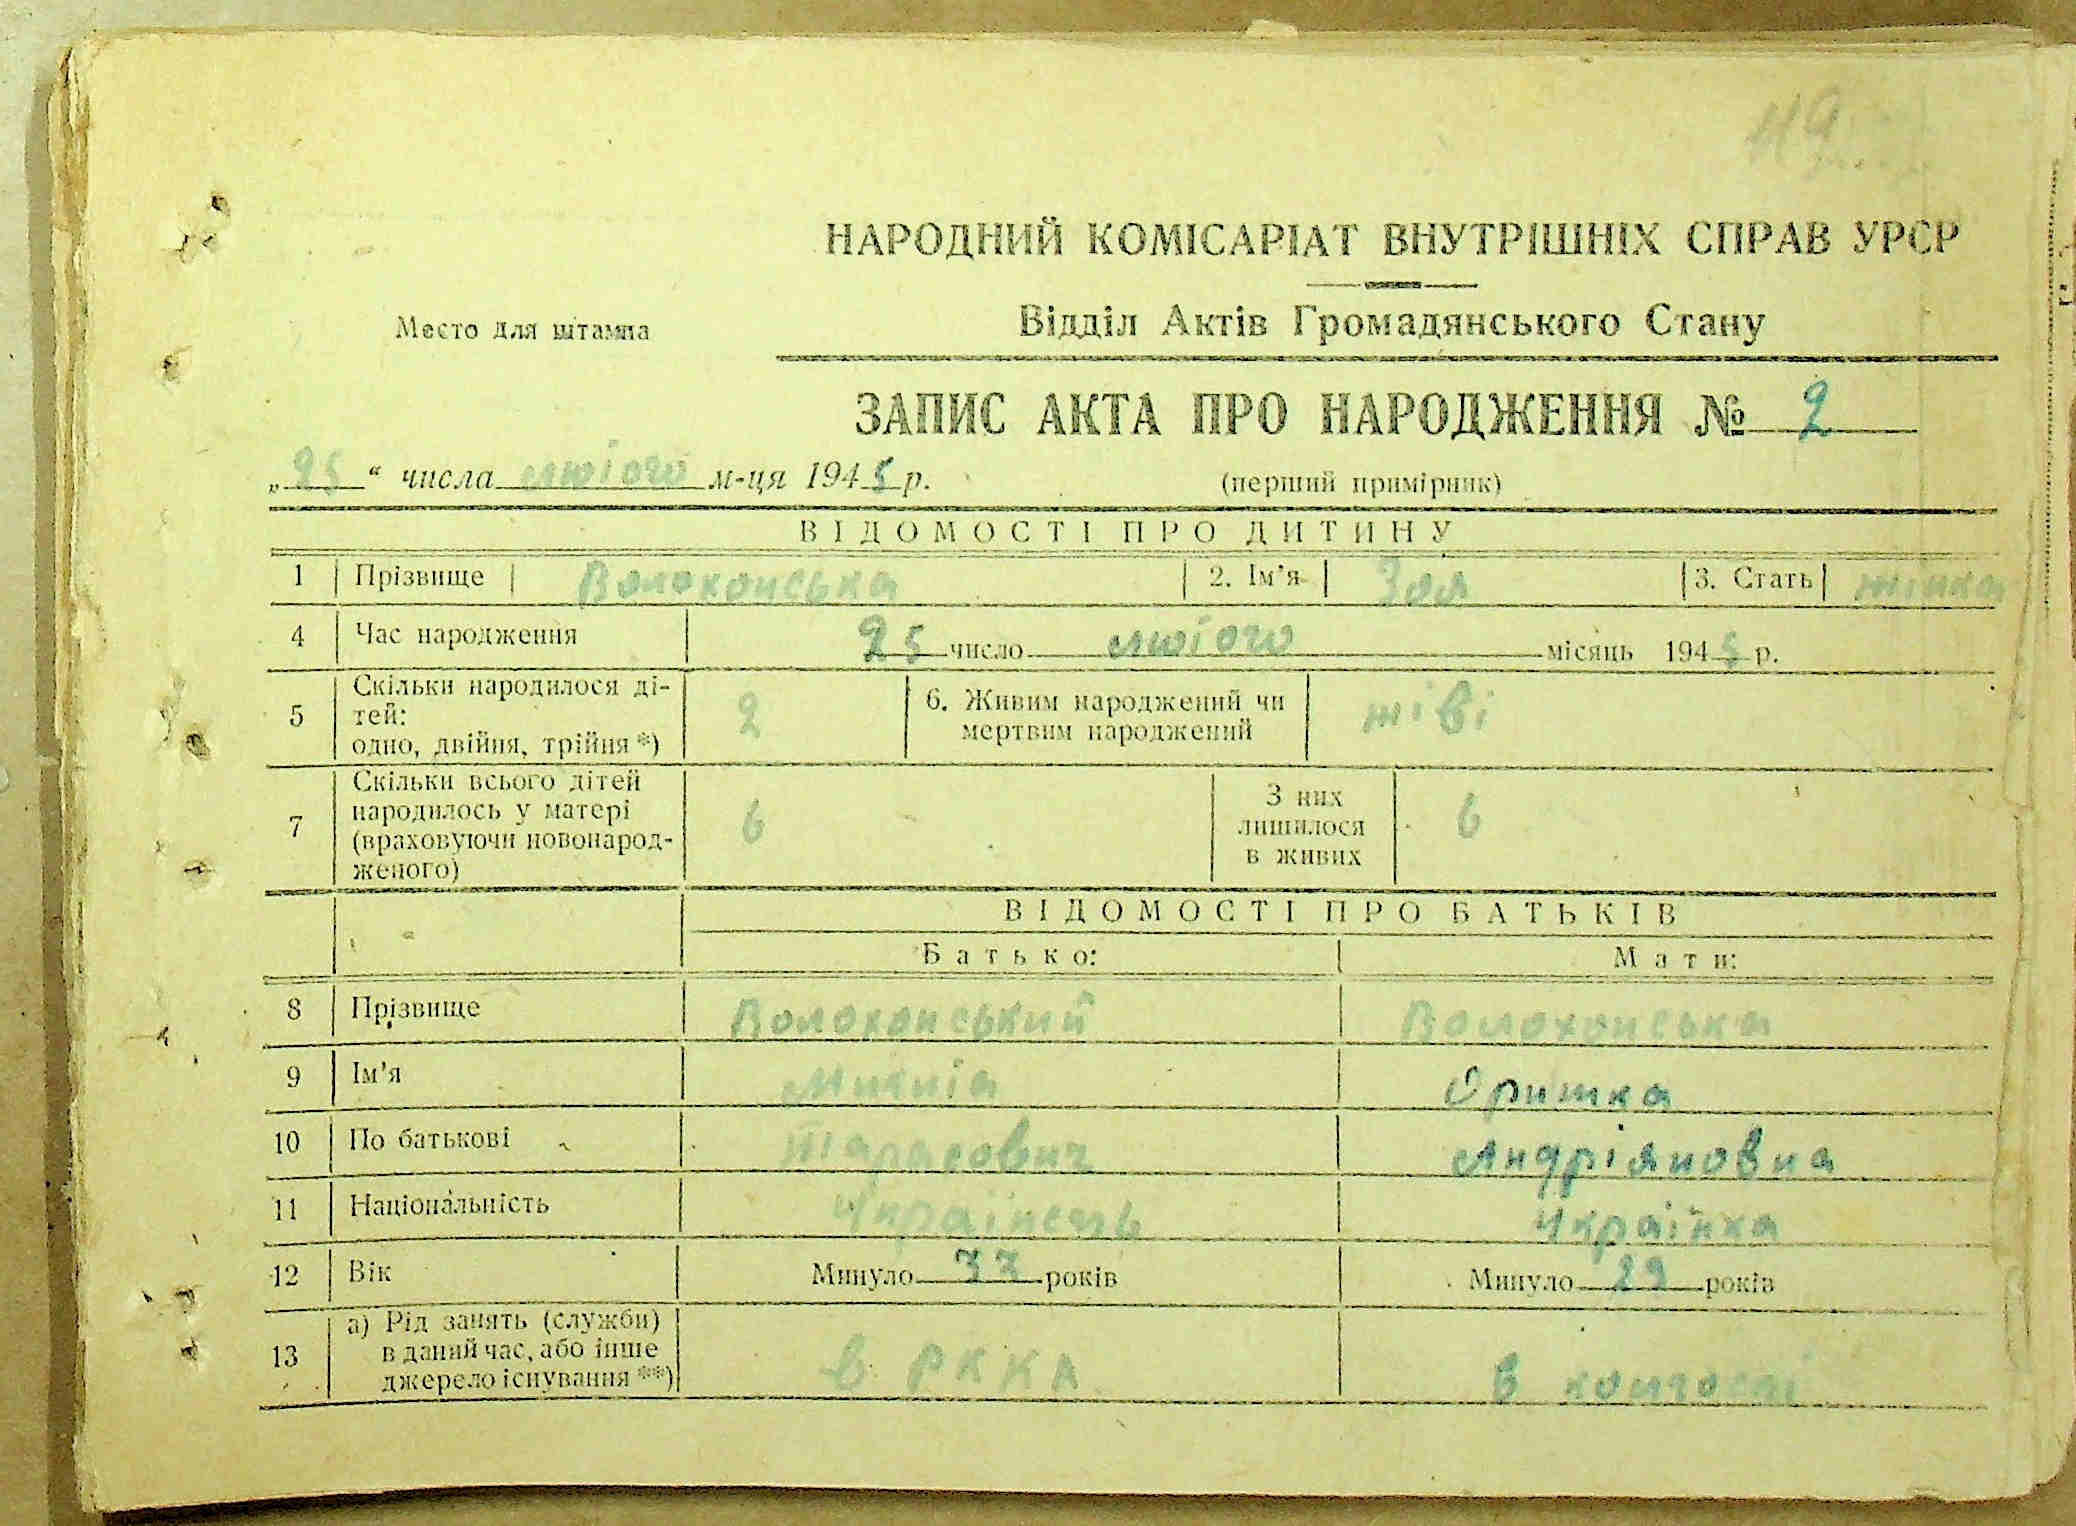 НАРОДНИЙ КОМІСАРІАТ ВНУТРІШНІХ СПРАВ УРСР
Место для штампа
Відділ Актів Громадянського Стану
ЗАПИС АКТА ПРО НАРОДЖЕННЯ № 2
„25“ числа лютого м-ця 1945 р. (перший примірник)
ВІДОМОСТІ ПРО ДИТИНУ
1 Прізвище Волохонська 2. Ім’я Зоя 3. Стать жінка
4 Час народження 25 число лютого місяць 1945 р.
5 Скільки народилося ді-
тей:
одно, двійня, трійня *) 2 6. Живим народжений чи
мертвим народжений живі
7 Скільки всього дітей
народилось у матері
(враховуючи новонарод-
женого) 6 З них
лишилося
в живих 6
ВІДОМОСТІ ПРО БАТЬКІВ
Батько: Мати:
8 Прізвище Волохонський Волохонська
9 Ім’я Оришка
10 По батькові Тарасович Андріяновна
11 Національність Українець Українка
12 Вік Минуло 33 років Минуло 29 років
13 а) Рід занять (служби)
в даний час, або інше
джерело існування **) в РККА в колгоспі